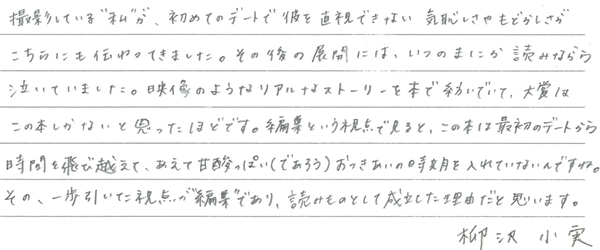 撮影している"私"が、初めてのデートで彼を直視できない 気恥しさやもどかしさが
こちらにも伝わってきました。その後の展開には、いつのまにか読みながら
泣いていました。映像のようなリアルなストーリーを本で紡いでいて、大賞は
この本しかないと思ったほどです。編集という視点で見ると、この本は最初のデートから
時間を飛び越えて、あえて甘酸っぱい(であろう)おつきあいの時期を入れていないんですね。
その、一歩引いた視点が"編集"であり、読みものとして成立した理由だと思います。
柳沢 小実